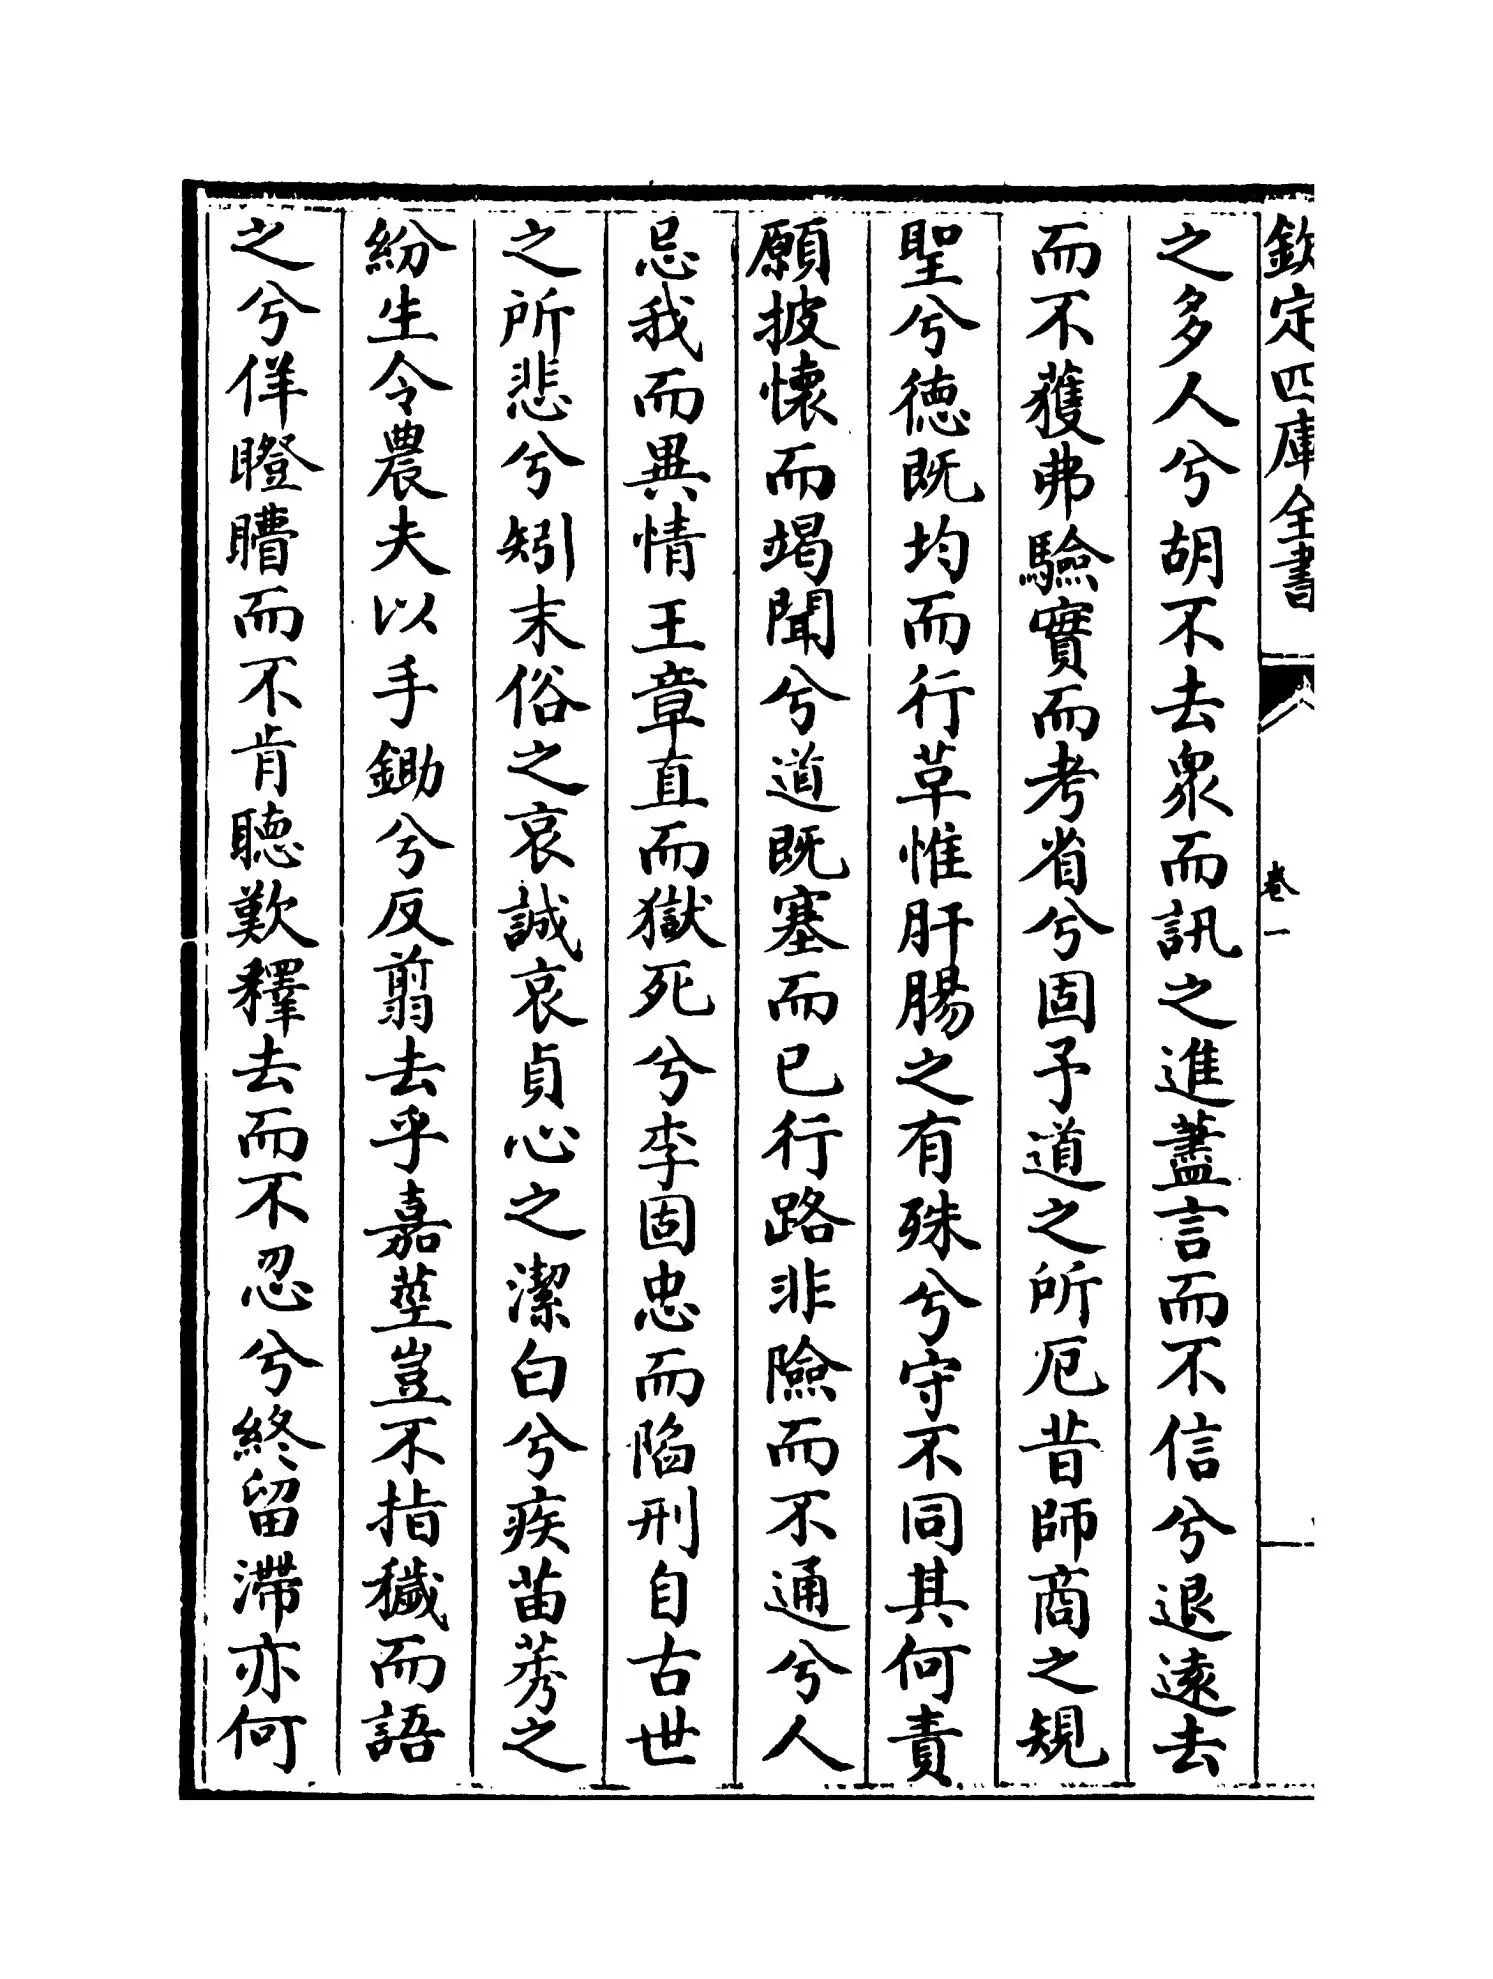 欽定四庫全書
卷一
之多人兮胡不去衆而訊之進藎言而不信兮退遠去
而不獲弗驗實而考省兮固予道之所厄昔師商之規
聖兮德既均而行草惟肝腸之有殊兮守不同其何責
願披懷而竭聞兮道既塞而已行路非險而不通兮人
忌我而異情王章直而獄死兮李固忠而陷刑自古世
之所悲兮矧末俗之哀誠哀貞心之潔白兮疾苗莠之
紛生令農夫以手鋤兮反翦去乎嘉莖豈不指穢而語
之兮佯瞪矒而不肯聽歎釋去而不忍兮終留滯亦何